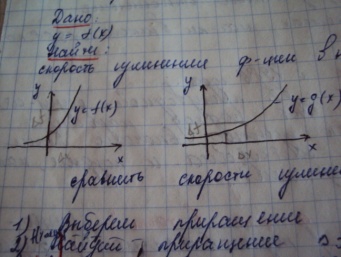 Дано:
y = f(x)
Найти:
скорость изменения ф-ции в
y
y=f(x)
x
y
y=g(x)
Δx
x
сравнить скорости
1) Выберем приращение
2) Найдём, приращение